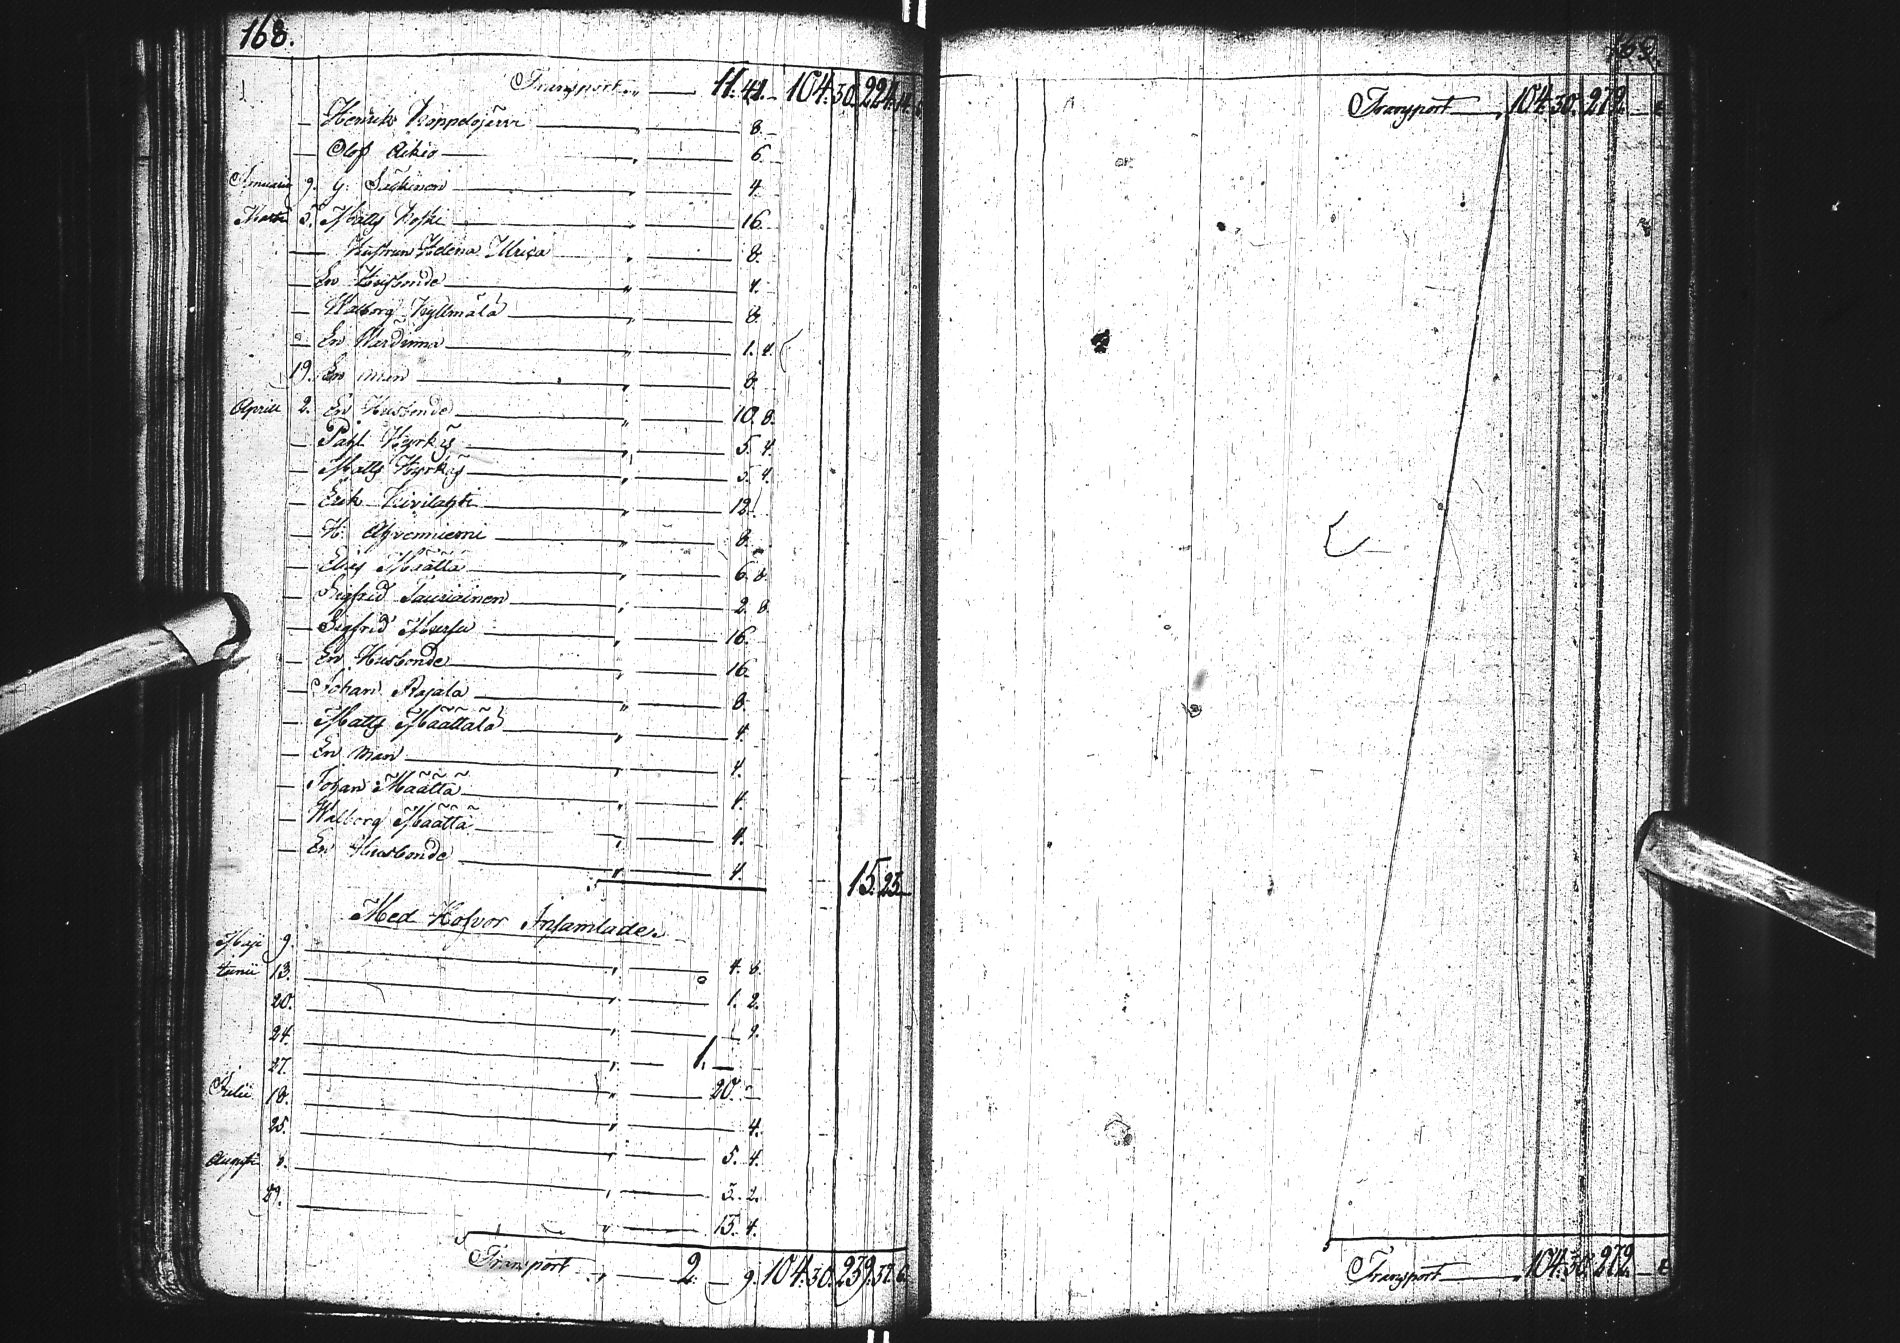 168.
Transport 11. 42. 104. 30. 224. 14.
Henrik Koppelojerfvi " 8.
Olof Aikio " 6.
Januarii 9. G: " 4.
Martii 5. Matts Koski " 16.
Hustrun Helena Ulrica " 8.
En Husbonde " 4.
Walborg Kyllmälä " 8.
En Werdinna " 1. 4.
19. En man " 8.
Aprill 2. En Husbonde " 10. 8.
Påhl Hyrkäs " 5. 4.
Matts Hyrkäs " 5. 4.
Erik Kivilahti " 12.
H: Ahvenniemi " 8.
Elias Määttä " 6. 8.
Sigfrid Tauriainen " 2. 8.
Sigfrid Mursu " 16.
En Husbonde " 16.
Johan Rajala " 8.
Matts Määttälä " 4.
En man " 4.
Johan Määttä " 4.
Walborg Määttä " 4.
En Husbonde " 4.
15. 23.
Med Hofvor Insamlade.
Maji 9. " 4. 8.
Junii 13. " 1. 2.
20. " 9.
24. " 1.
27. " 20.
Julii 18. " 4.
25. " 5. 4.
Augusti 8. " 5. 2.
29. " 15. 4.
Transport " 2. 9. 104. 30. 239. 37. 6.
169.
Transport " 104. 30. 272.
Transport " 104. 30. 272.